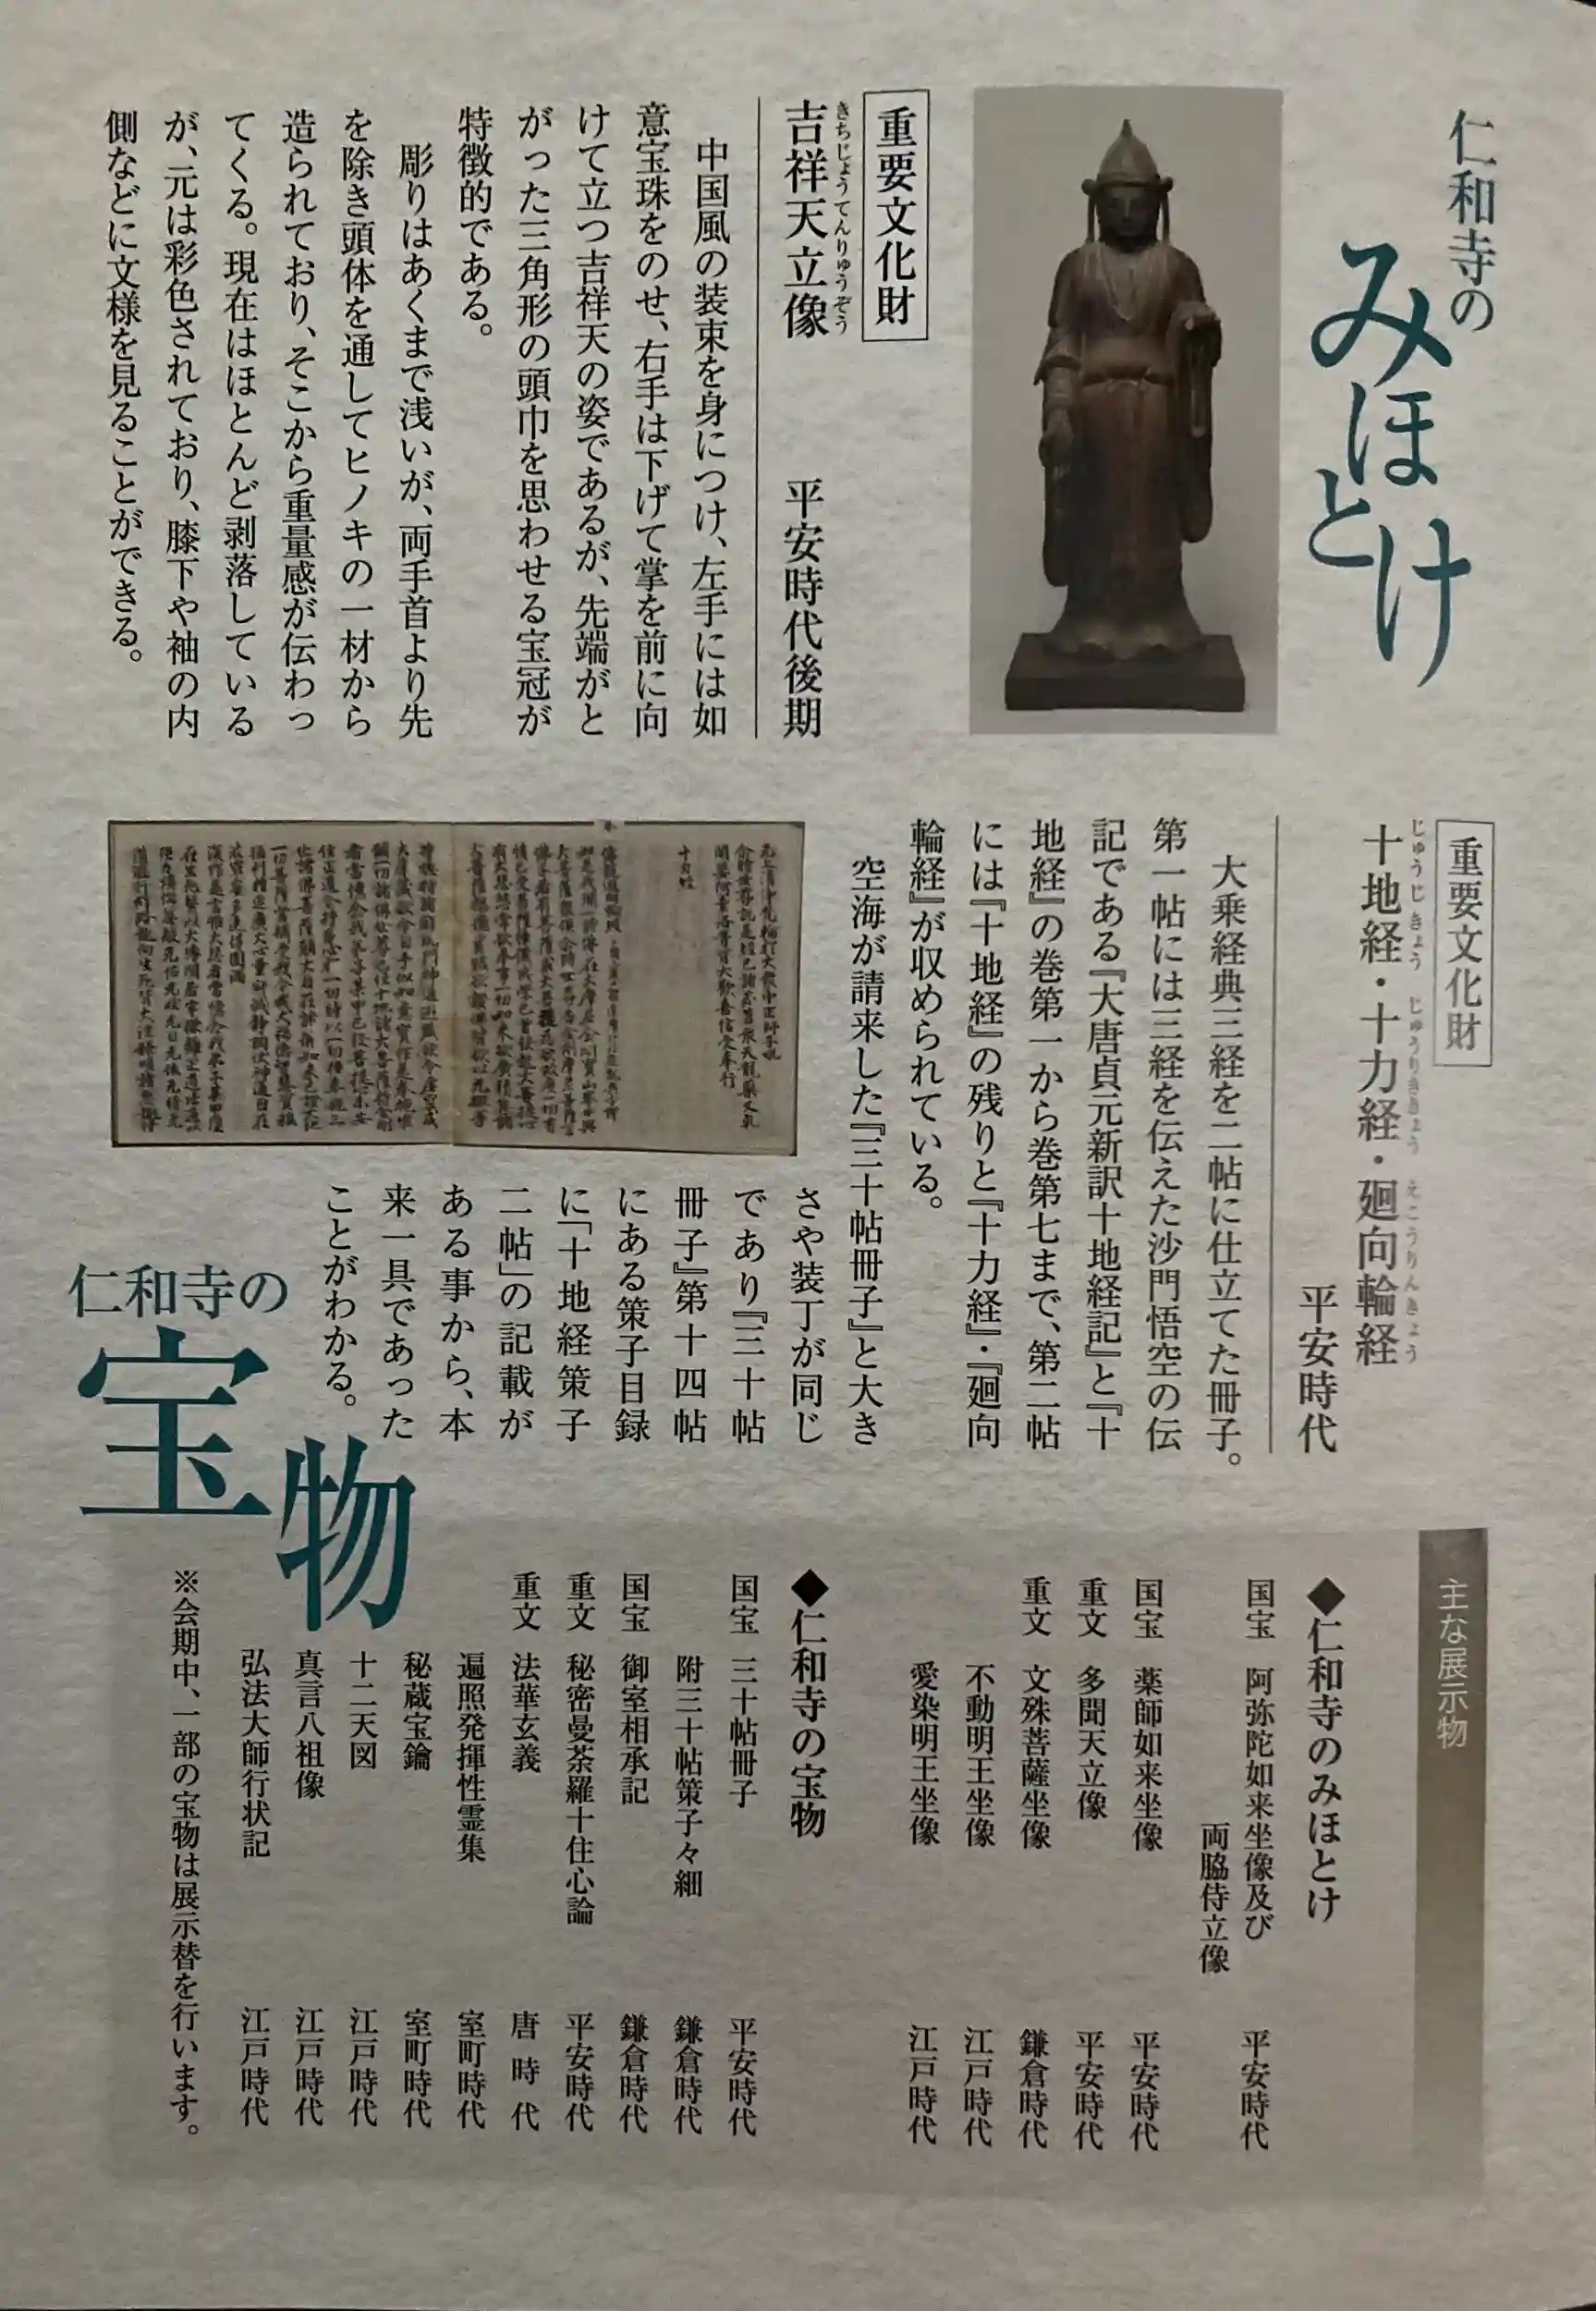 仁和寺の
みほとけ
重要文化財
きちじょうてんりゅうぞう
吉祥天立像　平安時代後期
中国風の装束を身につけ、左手には如
意宝珠をのせ、右手は下げて掌を前に向
けて立つ吉祥天の姿であるが、先端がと
がった三角形の頭巾を思わせる宝冠が
特徴的である。
彫りはあくまで浅いが、両手首より先
を除き頭体を通してヒノキの一材から
造られており、そこから重量感が伝わっ
てくる。現在はほとんど剥落している
が、元は彩色されており、膝下や袖の内
側などに文様を見ることができる。
重要文化財
じゅうじきょう　じゅうりききょう　えこうりんきょう
十地経・十力経・廻向輪経
平安時代
大乗経典三経を二帖に仕立てた冊子。
第一帖には三経を伝えた沙門悟空の伝
記である『大唐貞元新訳十地経記』と『十
地経』の巻第一から巻第七まで、第二帖
には『十地経』の残りと『十力経』・『廻向
輪経』が収められている。
空海が請来した『三十帖冊子』と大き
さや装丁が同じ
であり『三十帖
冊子』第十四帖
にある策子目録
に「十地経策子
二帖」の記載が
ある事から、本
来一具であった
ことがわかる。
仁和寺の
宝物
主な展示物
◆仁和寺のみほとけ
国宝　阿弥陀如来坐像及び　平安時代
両脇侍立像
国宝　薬師如来坐像　平安時代
重文　多聞天立像　平安時代
重文　文殊菩薩坐像　鎌倉時代
不動明王坐像　江戸時代
愛染明王坐像　江戸時代
◆仁和寺の宝物
国宝　三十帖冊子　平安時代
附三十帖策子々細　鎌倉時代
国宝　御室相承記　鎌倉時代
重文　秘密曼荼羅十住心論　平安時代
重文　法華玄義　唐時代
遍照発揮性霊集　室町時代
秘蔵宝鑰　室町時代
十二天図　江戸時代
真言八祖像　江戸時代
弘法大師行状記　江戸時代
※会期中、一部の宝物は展示替を行います。